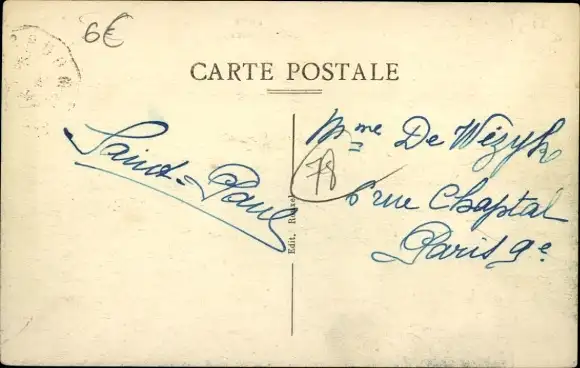 6€
CARTE POSTALE
Saint-Paul
Mme De Wizyk
78
6 rue Chaptal
Paris 9e
Edit.